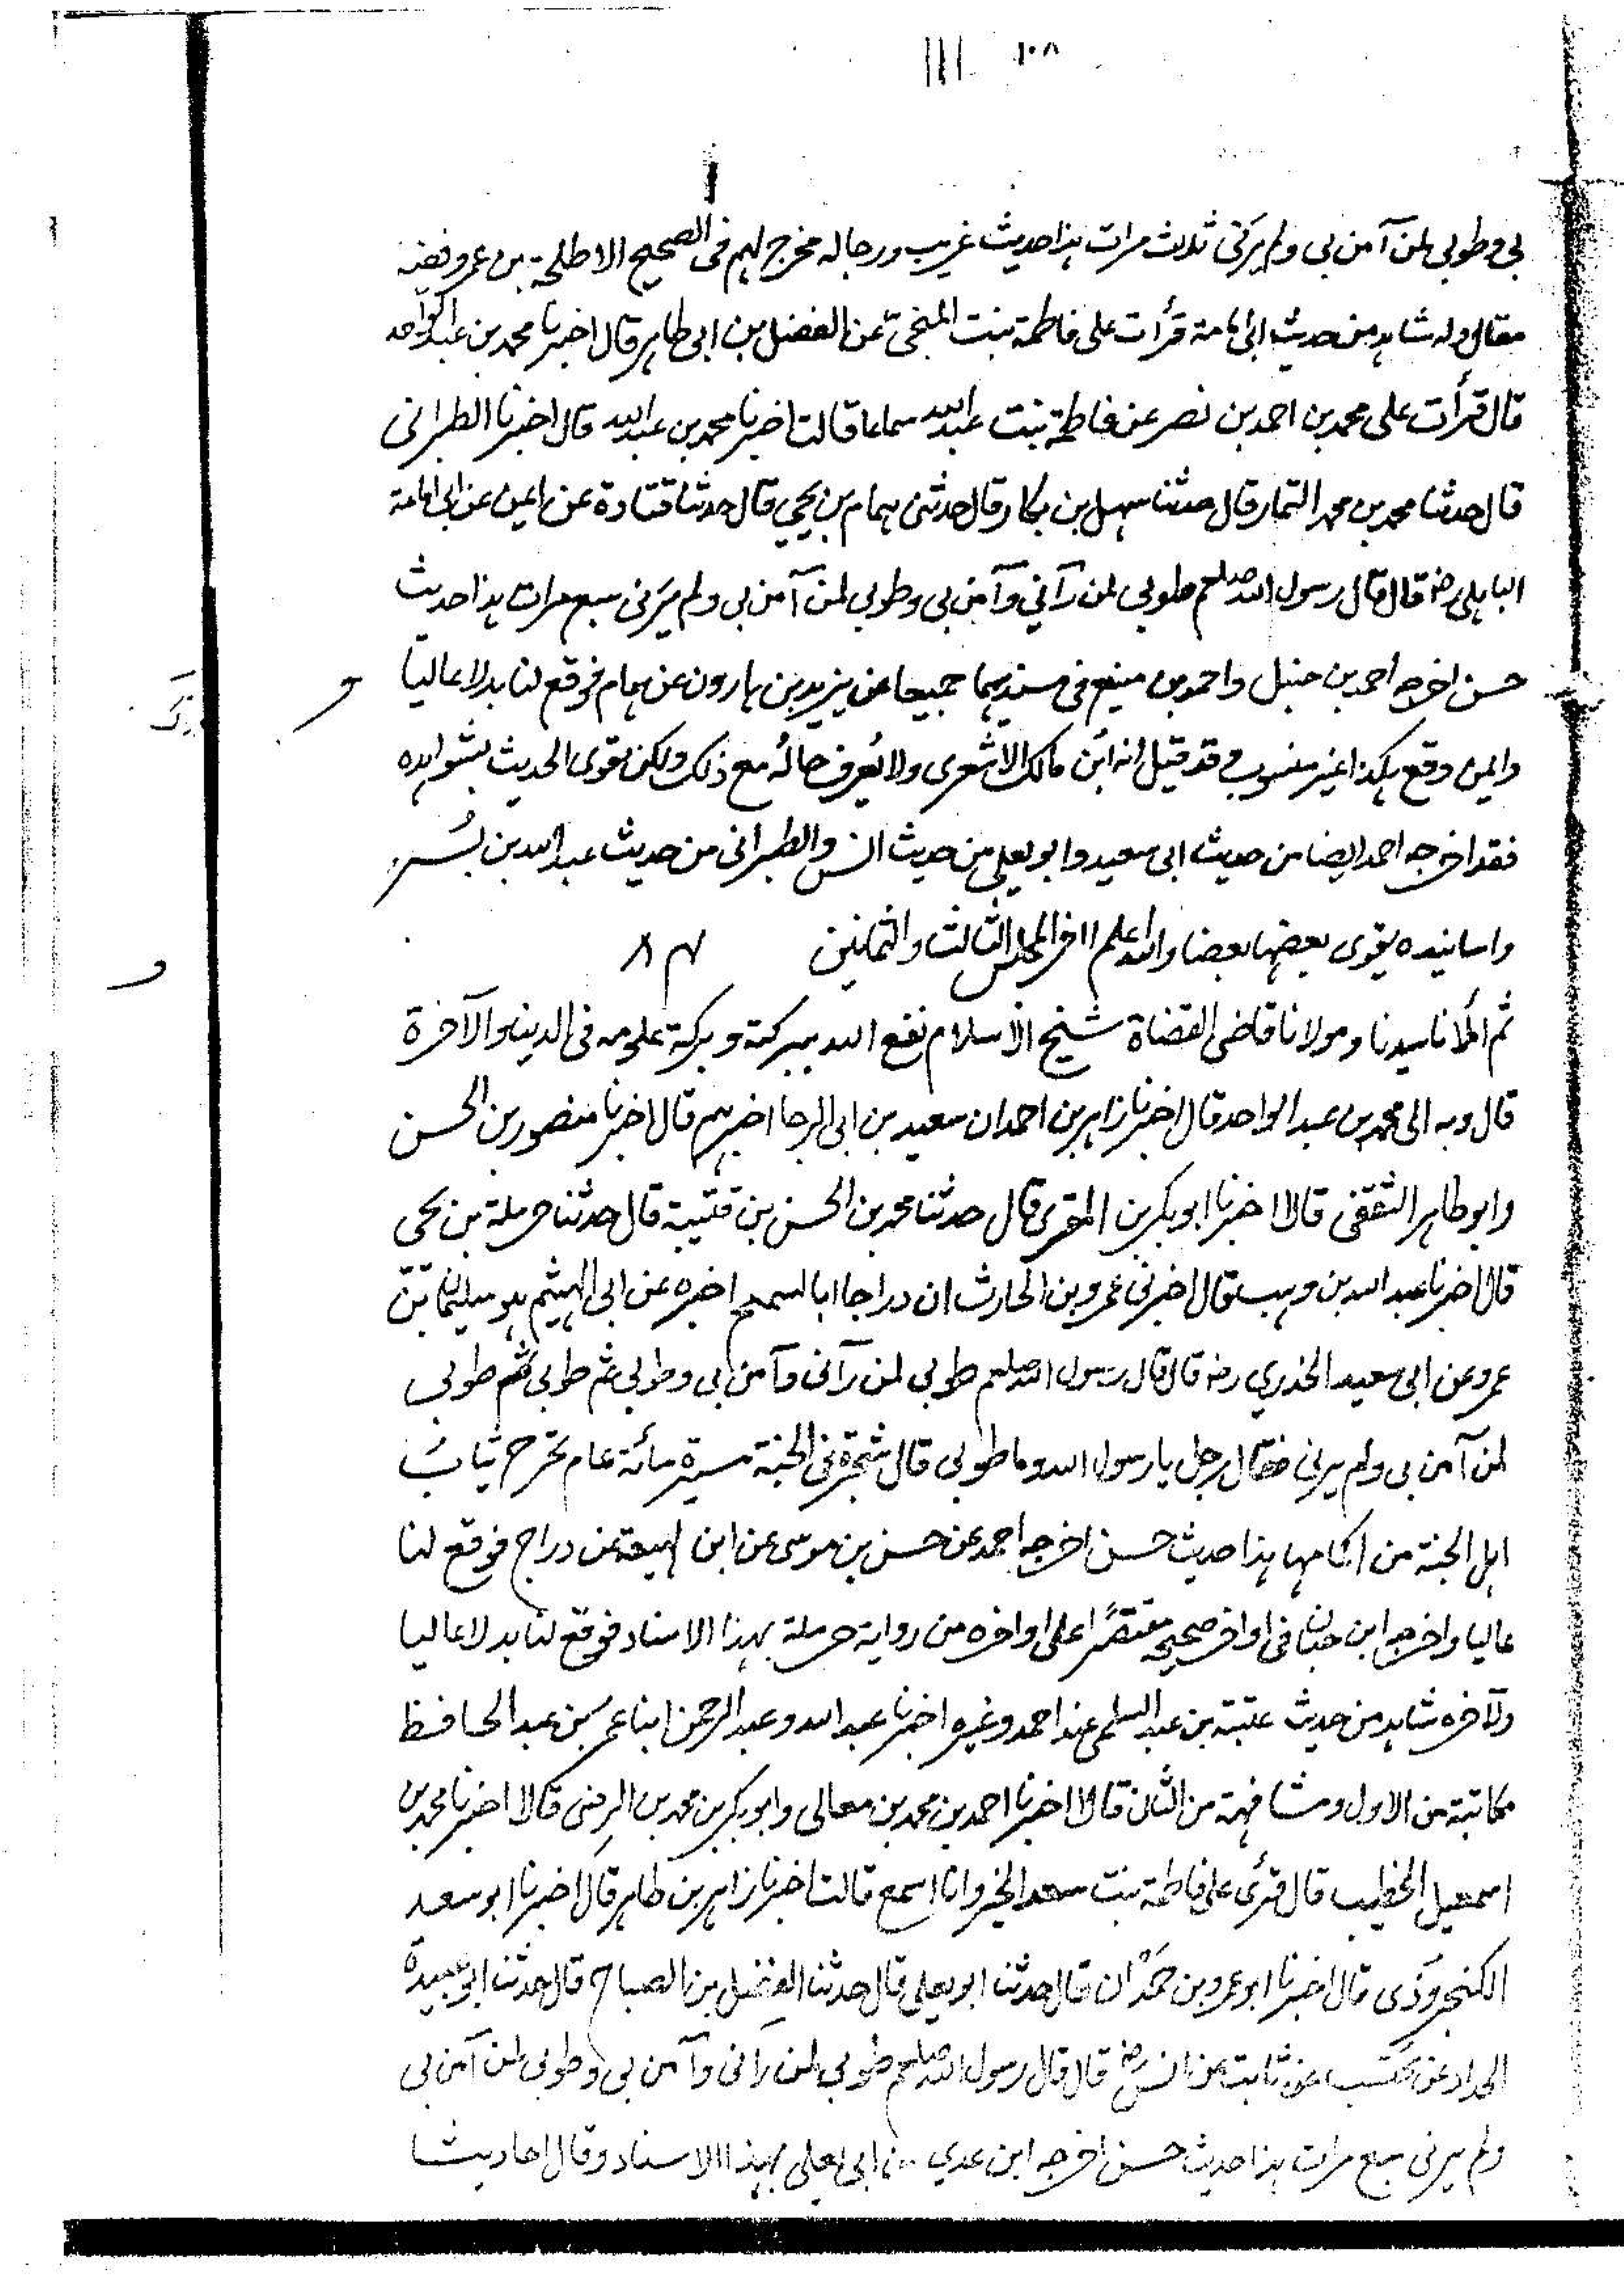 ١٠٨ 111
بي وطوبى لمن آمن بي ولم يرني ثلاث مرات هذا حديث غريب ورجاله مخرج لهم في الصحيح الا طلحة بن عمرو ففيه
مقال وله شاهد من حديث ابي امامة قرأت على فاطمة بنت المنجى عن الفضل بن ابي طاهر قال اخبرنا محمد بن عبد الواحد
قال قرأت على محمد بن احمد بن نصر عن فاطمة بنت عبد الله سماعا قالت اخبرنا محمد بن عبد الله قال اخبرنا الطبراني
قال حدثنا محمد بن محمد التمار قال حدثنا سهل بن بكار قال حدثني همام بن يحيي قال حدثنا قتادة عن ايمن عن ابي امامة
الباهلي رض قال قال رسول الله صلعم طوبى لمن رآني وآمن بي وطوبى لمن آمن بي ولم يَرَني سبع مرات هذا حديث
حسن اخرجه احمد بن حنبل واحمد بن منيع في مسنديهما جميعا عن يزيد بن هارون عن همام فوقع لنا بدلا عاليا
وايمن وقع هكذا غير منسوب وقد قيل انه ابن مالك الاشعري ولا يُعرف حالُه مع ذلك ولكن تقوى الحديث بشواهده
فقد اخرجه احمد ايضا من حديث ابي سعيد وابو يعلى من حديث انس والطبراني من حديث عبد الله بن بُسر
واسانيده يقوى بعضها بعضا والله اعلم آخر المجلس الثالث والثمانين ٨٤
ثم املانا سيدنا ومولانا قاضي القضاة شيخ الاسلام نفع الله ببركته وبركة علومه في الدنيا والآخرة
قال وبه الى محمد بن عبد الواحد قال اخبرنا زاهر بن احمد ان سعيد بن ابي الرجا اخبرهم قال اخبرنا منصور بن الحسن
وابو طاهر الثقفي قالا اخبرنا ابو بكر بن المقري قال حدثنا محمد بن الحسن بن قتيبة قال حدثنا حرملة بن يحيى
قال اخبرنا عبد الله بن وهب قال اخبرني عمرو بن الحارث ان دراجا ابا السمح اخبره عن ابي الهيثم هو سليمان بن
عمرو عن ابي سعيد الخدري رض قال قال رسول الله صلعم طوبى لمن رآنى وآمن بي وطوبى ثم طوبى ثم طوبى
لمن آمن بي ولم يرني فقال رجل يا رسول الله وما طوبى قال شجرة في الجنة مسيرة مائة عام تخرج ثيابُ
اهل الجنة من اكمامها هذا حديث حسن اخرجه احمد عن حسن بن موسى عن ابن لهيعة عن دراج فوقع لنا
عاليا واخرجه ابن حبان في اواخر صحيحه مقتصرًا على اواخره من رواية حرملة بهذا الاسناد فوقع لنا بدلا عاليا
ولآخره شاهد من حديث عتبة بن عبد السلمى عند احمد وغيره اخبرنا عبد الله وعبد الرحمن ابنا عمر بن عبد الحافظ
مكاتبة من الاول ومشافهة من الثاني قالا اخبرنا احمد بن محمد بن معالى وابو بكر بن محمد بن الرضى قالا اخبرنا محمد بن
اسمعيل الخطيب قال قرئ على فاطمة بنت سعد الخير وانا اسمع قالت اخبرنا زاهر بن طاهر قال اخبرنا ابو سعد
الكنجروذى قال اخبرنا ابو عمرو بن حَمْدان قال حدثنا ابو يعلى قال حدثنا الفضل بن الصباح قال حدثنا ابو عبيدة
الحداد عن محتسب عن ثابت عن انس رض قال قال رسول الله صلعم طوبى لمن رآنى وآمن بي وطوبى لمن آمن بي
ولم يرني سبع مرات هذا حديث حسن اخرجه ابن عدي عن ابي يعلى بهذا الاسناد وقال احاديث